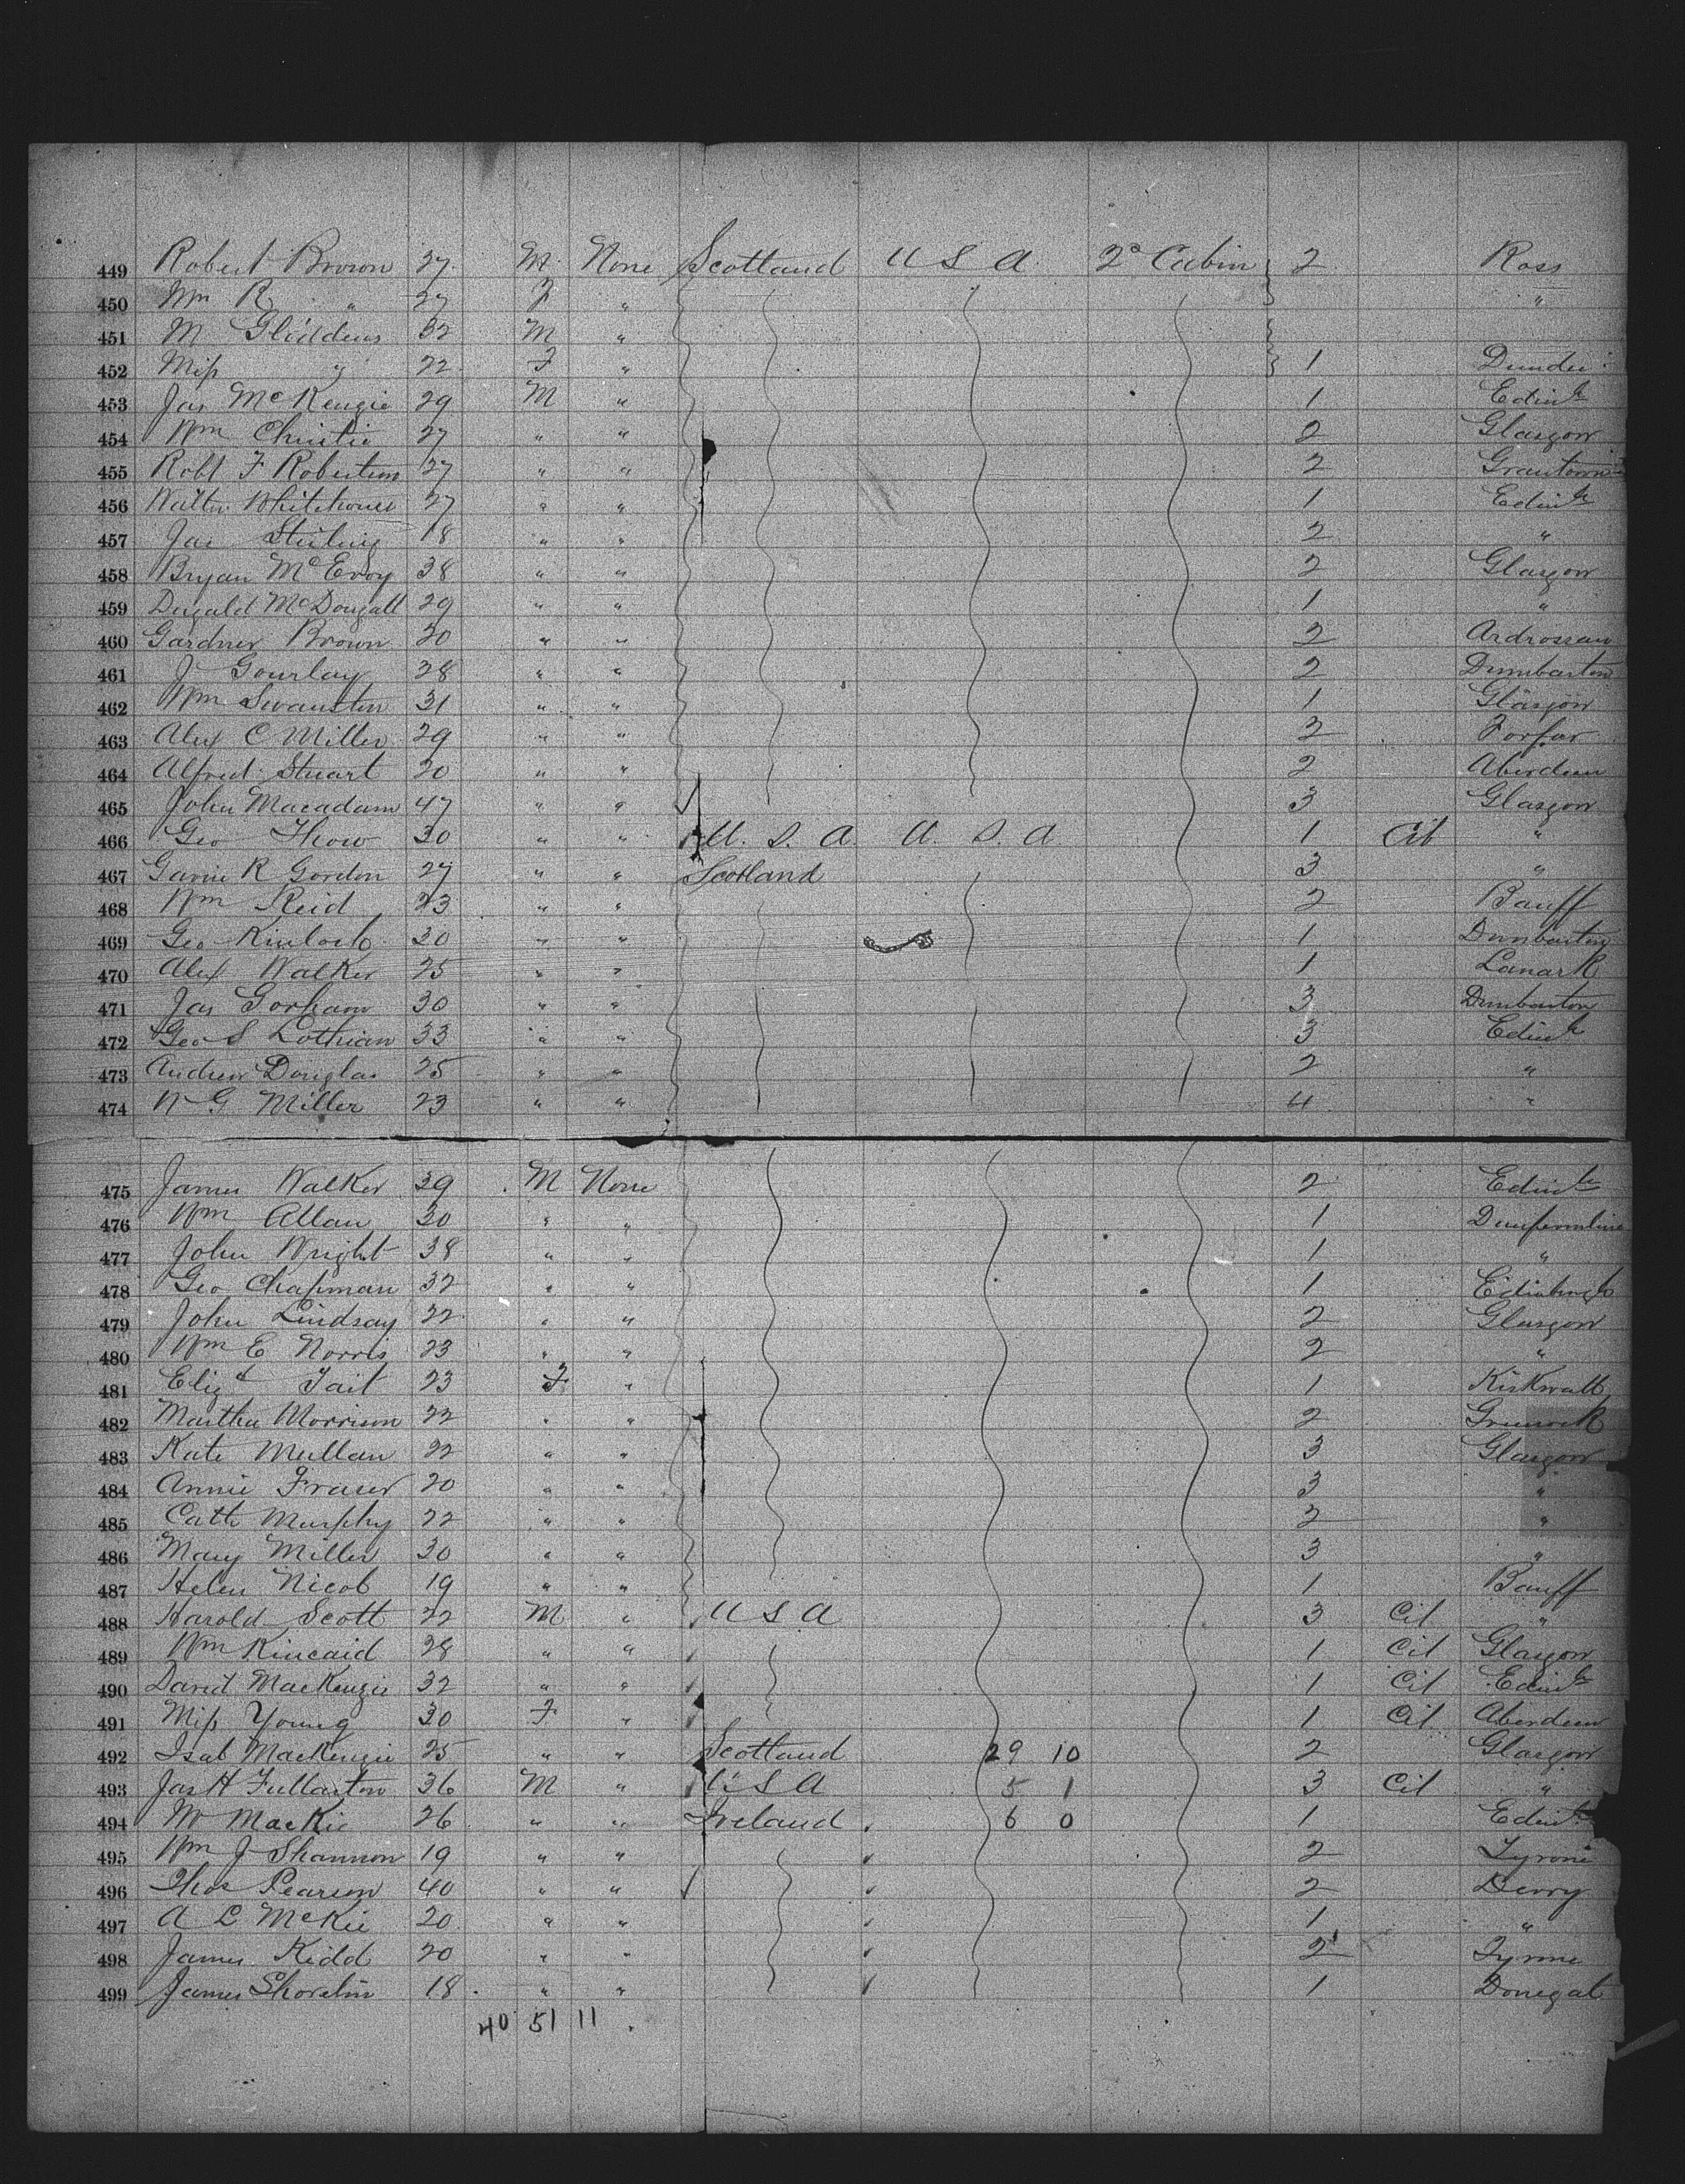 449 Robert Brown 27 M None Scotland U S A 2ª Cabin 2 Ross
450 Wm R " 27 F " "
451 M Gliddens 32 M "
452 Miss " 22 F " 1 Dundee
453 Jas McKenzie 29 M " 1 Edinh
454 Wm Christie 27 " " 2 Glasgow
455 Robt F Robertson 27 " " 2 Grantown
456 Walter Whitehouse 27 " " 1 Edinh
457 Jas Stirling 18 " " 2 "
458 Bryan McEvoy 38 " " 2 Glasgow
459 Dugald McDougall 29 " " 1 "
460 Gardner Brown 20 " " 2 Ardrossan
461 J Gourlay 28 " " 2 Dumbarton
462 Wm Swanston 31 " " 1 Glasgow
463 Alex C Miller 29 " " 2 Forfar
464 Alfred Stuart 20 " " 2 Aberdeen
465 John Macadam 47 " " 3 Glasgow
466 Geo Thow 30 " " U. S. A. U. S. A 1 Cit "
467 Gavin R Gordon 27 " " Scotland 3 "
468 Wm Reid 23 " " 2 Banff
469 Geo Kinloch 30 " " 1 Dumbarton
470 Alex Walker 25 " " 1 Lanark
471 Jas Gorham 30 " " 3 Dumbarton
472 Geo S Lothian 33 " " 3 Edinh
473 Andrew Douglas 25 " " 2 "
474 W G Miller 23 " " 4 "
475 James Walker 39 M None 2 Edinh
476 Wm Allan 30 " " 1 Dunfermline
477 John Wright 38 " " 1 "
478 Geo Chapman 32 " " 1 Edinburgh
479 John Lindsay 22 " " 2 Glasgow
480 Wm E Norris 23 " " 2 "
481 Elizth Tait 23 F " 1 Kirkwall
482 Martha Morrison 22 " " 2 Greenock
483 Kate Mullan 22 " " 3 Glasgow
484 Annie Fraser 20 " " 3 "
485 Cath Murphy 22 " " 2 "
486 Mary Miller 30 " " 3 "
487 Helen Nicol 19 " " 1 Banff
488 Harold Scott 22 M " U S A 3 Cit "
489 Wm Kincaid 28 " " 1 Cit Glasgow
490 David MacKenzie 32 " " 1 Cit Edinh
491 Miss Young 30 F " 1 Cit Aberdeen
492 Isab MacKenzie 25 " " Scotland 29 10 2 Glasgow
493 Jas H Fullarton 36 M " U S A 5 1 3 Cit "
494 W MacKie 26 " " Ireland 6 0 1 Edinh
495 Wm J Shannon 19 " " 2 Tyrone
496 Thos Pearson 40 " " 2 Derry
497 A L McKie 20 " " 1 "
498 James Kidd 20 " " 2 Tyrone
499 James 18 " " 1 Donegal
40 51 11